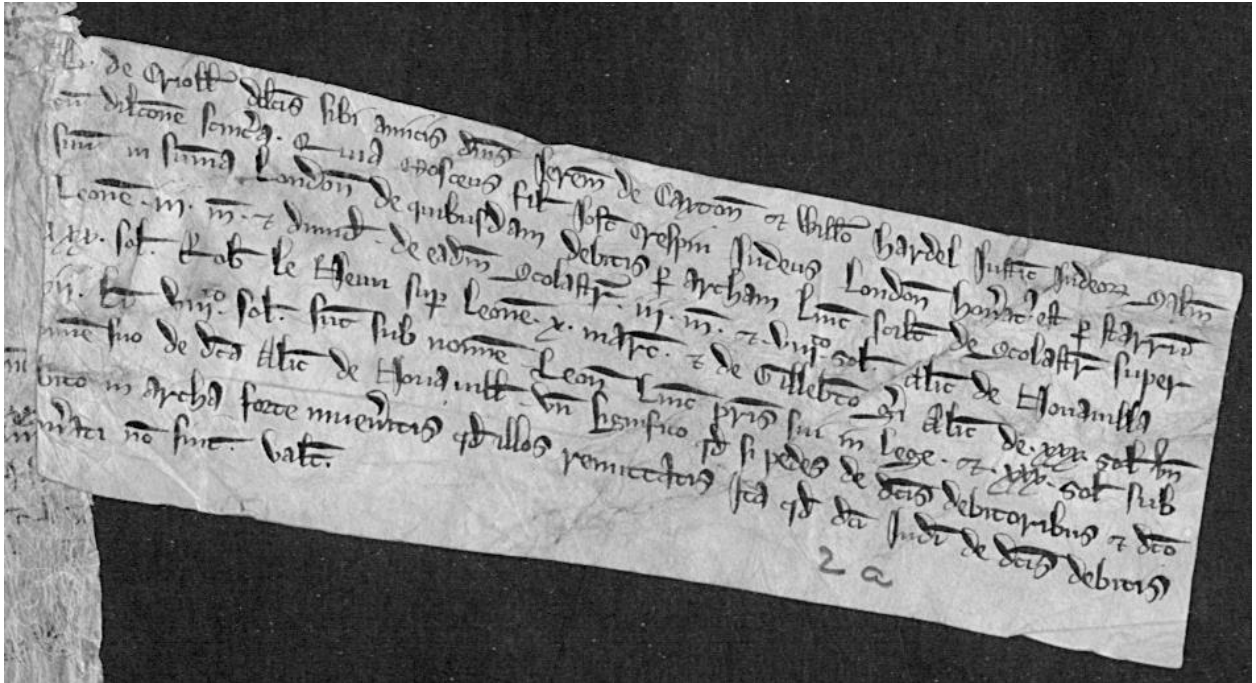 de Crioll dilcis sibi amicis dnis Jerem de Caxton & Willo Hardel Justic Judeor Salm
cu dilcone sincera. Quia Mosseus fil Josc Crespin Judeus London honat est p starru
suu in suma London de quibusdam debitis p archam Linc scilt de Scolastr super
Leone .iij. m. & dimid. de eadm Scolastr. iij. m. & viijto sol. Alic de Nouauilla
xxv. sol. Rob le Neuu sup Leone .x. marc. & de Gillebto gn Alic de .xxx. sol. vn
li. viijto. sol. sut sub nomne Leon Linc pris sui in lege. & .xxx. sol sub
mne suo de dca Alic de Nouauill. vn significo qd si pedes de dcis debitoribus & dco
bito in archa forte inueitis qd illos remittatis Ita qd dci Judi de dcis debitis
ati no sint. Valet.
2 a